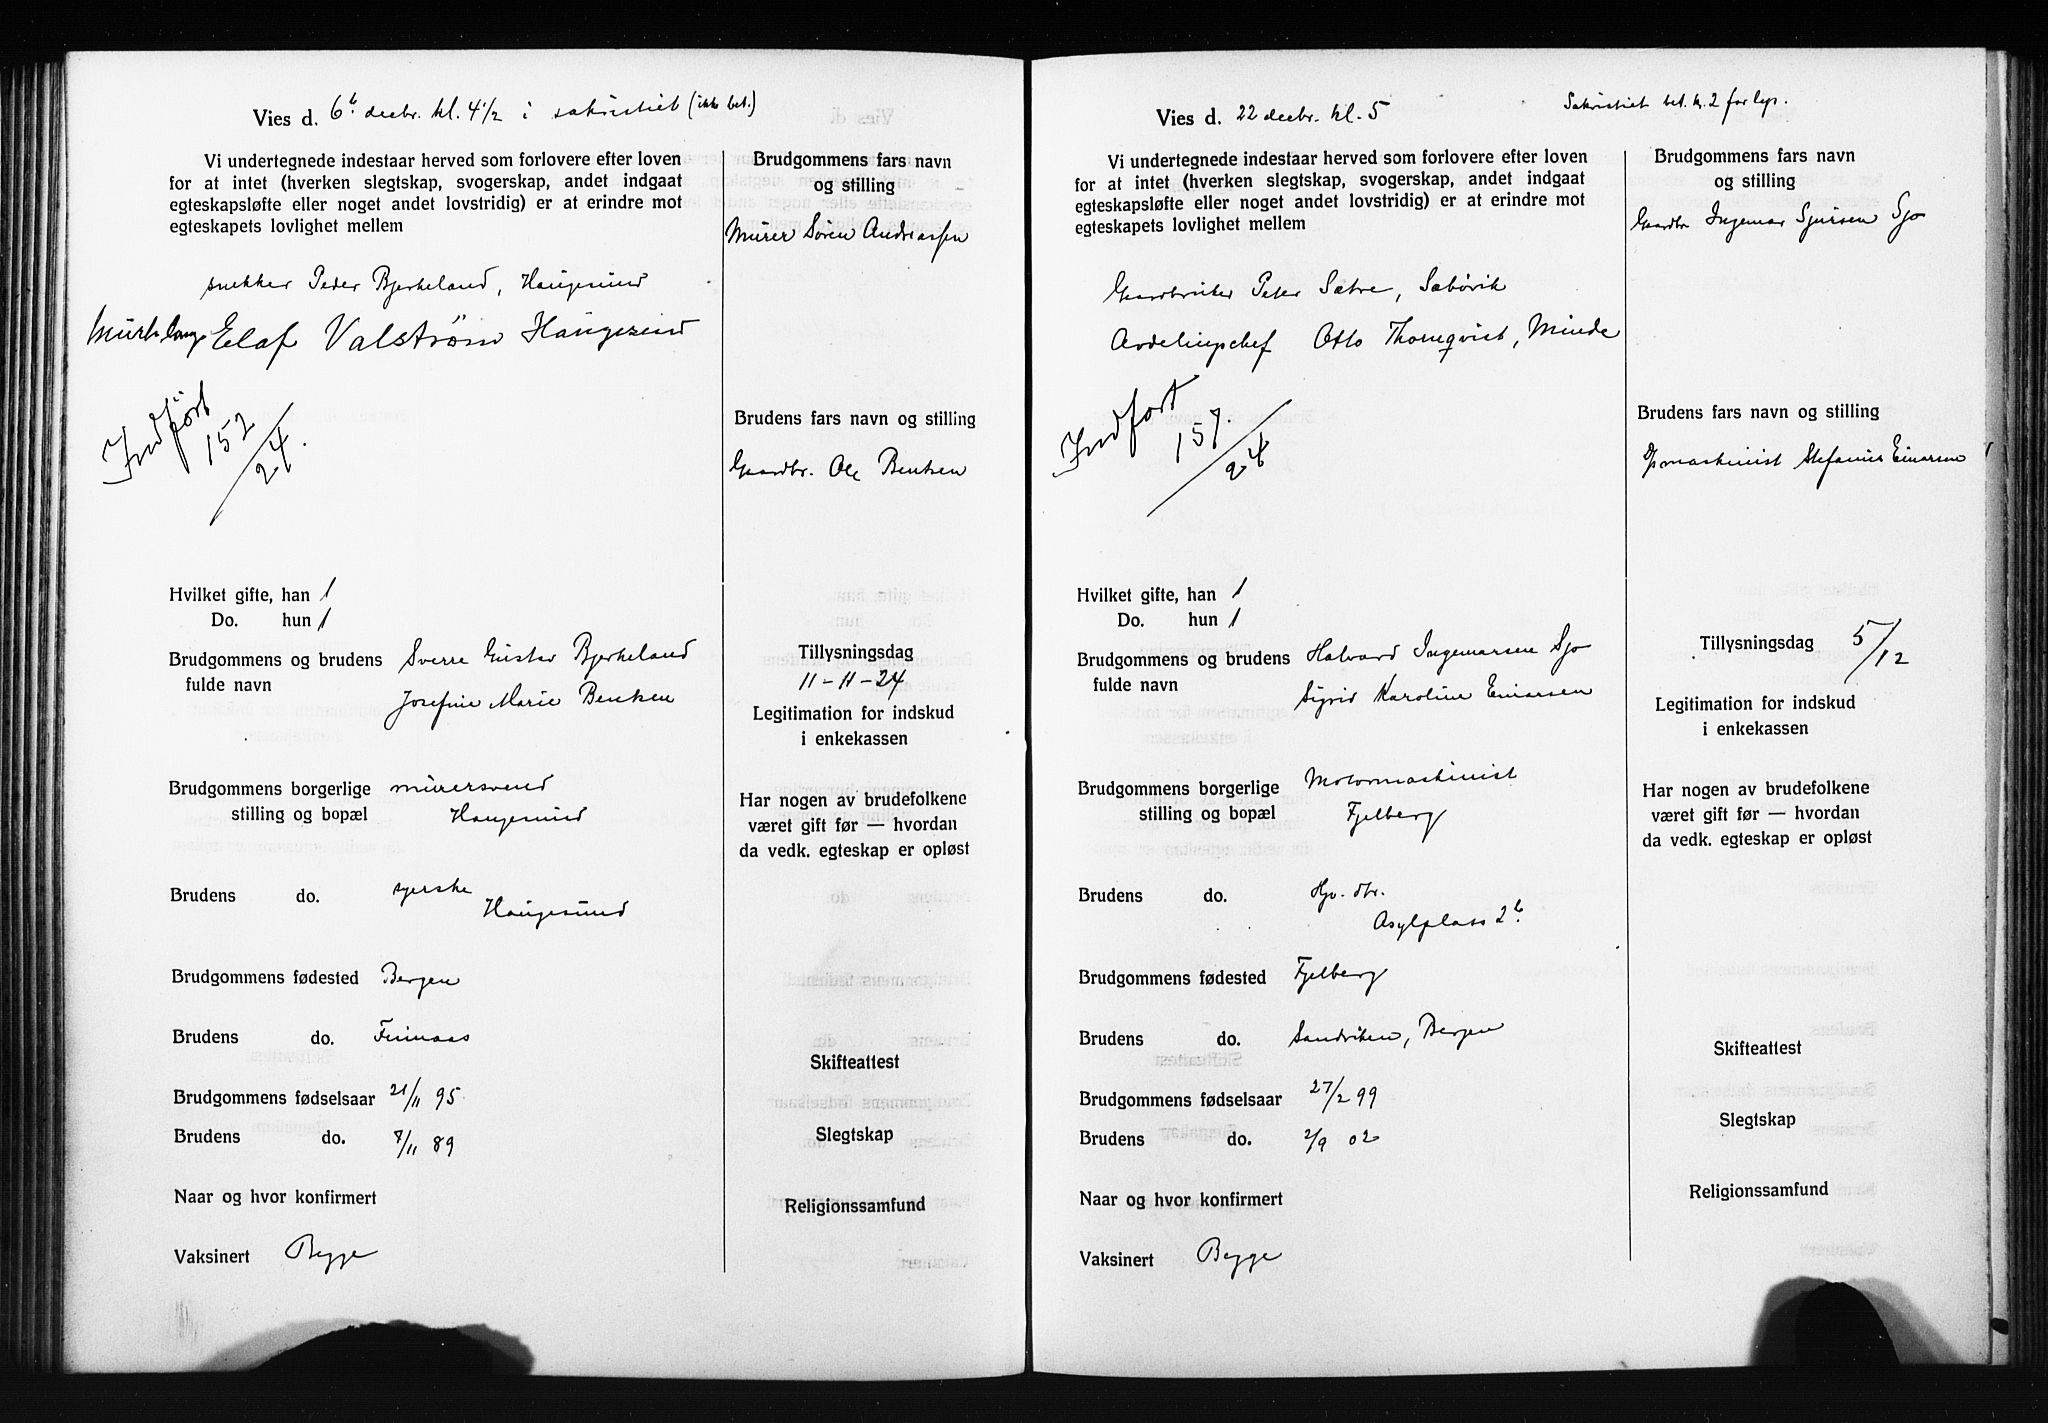 Vies d. 6te decbr. kl. 4½ i sakristiet (ikke bet.)
Vi undertegnede indestaar herved som forlovere efter loven
for at intet (hverken slegtskap, svogerskap, andet indgaat
egteskapsløfte eller noget andet lovstridig) er at erindre mot
egteskapets lovlighet mellem
snekker Peder Bjerkeland, Haugesund
Elaf Valstrøm Haugesund
Indført
152
24.
Hvilket gifte, han 1
Do. hun 1
Brudgommens og brudens Sverre Gustav Bjerkeland
fulde navn Josefine Marie Bentsen
Brudgommens borgerlige murersvend
stilling og bopæl Haugesund
Brudens do. syerske
Haugesund
Brudgommens fødested Bergen
Brudens do. Finnaas
Brudgommens fødselsaar 21/11 95
Brudens do. 7/11 89
Naar og hvor konfirmert
Vaksinert Begge
Brudgommens fars navn
og stilling
Murer Søren Andreassen
Brudens fars navn og stilling
Gaardbr. Ole Bentsen
Tillysningsdag
11-11-24
Legitimation for indskud
i enkekassen
Har nogen av brudefolkene
været gift før — hvordan
da vedk. egteskap er opløst
Skifteattest
Slegtskap
Religionssamfund
Vies d. 22 decbr. kl. 5
Sakristiet bet. kr. 2 for lys.
Vi undertegnede indestaar herved som forlovere efter loven
for at intet (hverken slegtskap, svogerskap, andet indgaat
egteskapsløfte eller noget andet lovstridig) er at erindre mot
egteskapets lovlighet mellem
Gaardbruker Peter Sætre, Sæbøvik
Avdelingschef Otto Thornqvist, Minde
Indført
157.
24
Hvilket gifte, han 1
Do. hun 1
Brudgommens og brudens Halvard Ingemarsen Sjo
fulde navn Sigrid Karoline Einarsen
Brudgommens borgerlige Motormaskinist
stilling og bopæl Fjelberg
Brudens do. Hjv. dtr.
Asylplass 2b
Brudgommens fødested Fjelberg
Brudens do. Sandviken, Bergen
Brudgommens fødselsaar 27/2 99
Brudens do. 2/9 02
Naar og hvor konfirmert
Vaksinert Begge
Brudgommens fars navn
og stilling
Gaardbr Ingemar Sjursen Sjo
Brudens fars navn og stilling
maskinist Stefanus Einarsen
Tillysningsdag 5/12
Legitimation for indskud
i enkekassen
Har nogen av brudefolkene
været gift før — hvordan
da vedk. egteskap er opløst
Skifteattest
Slegtskap
Religionssamfund